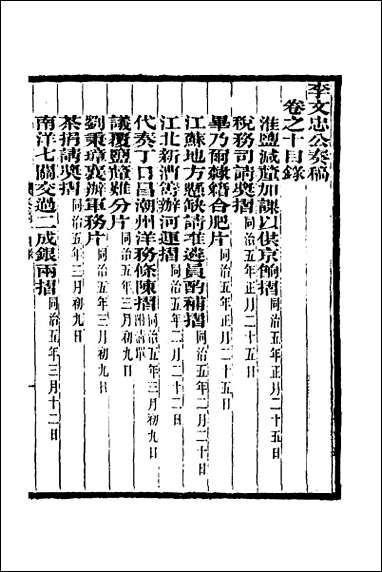 李文忠公奏稿
卷之十目錄
淮鹽減釐加課以供京餉摺同治五年正月二十五日
稅務司請獎摺同治五年正月二十五日
畢乃爾隸籍合肥片同治五年正月二十五日
江蘇地方懸缺請准遴員酌補摺同治五年二月二十日
江北新漕籌辦河運摺同治五年二月二十二日
代奏丁日昌潮州洋務條陳摺附清單同治五年三月初九日
議覆鹽釐難分片同治五年三月初九日
劉秉璋襄辦軍務片同治五年三月初九日
茶捐請獎摺同治五年三月初九日
南洋七關交過二成銀兩摺同治五年三月十二日